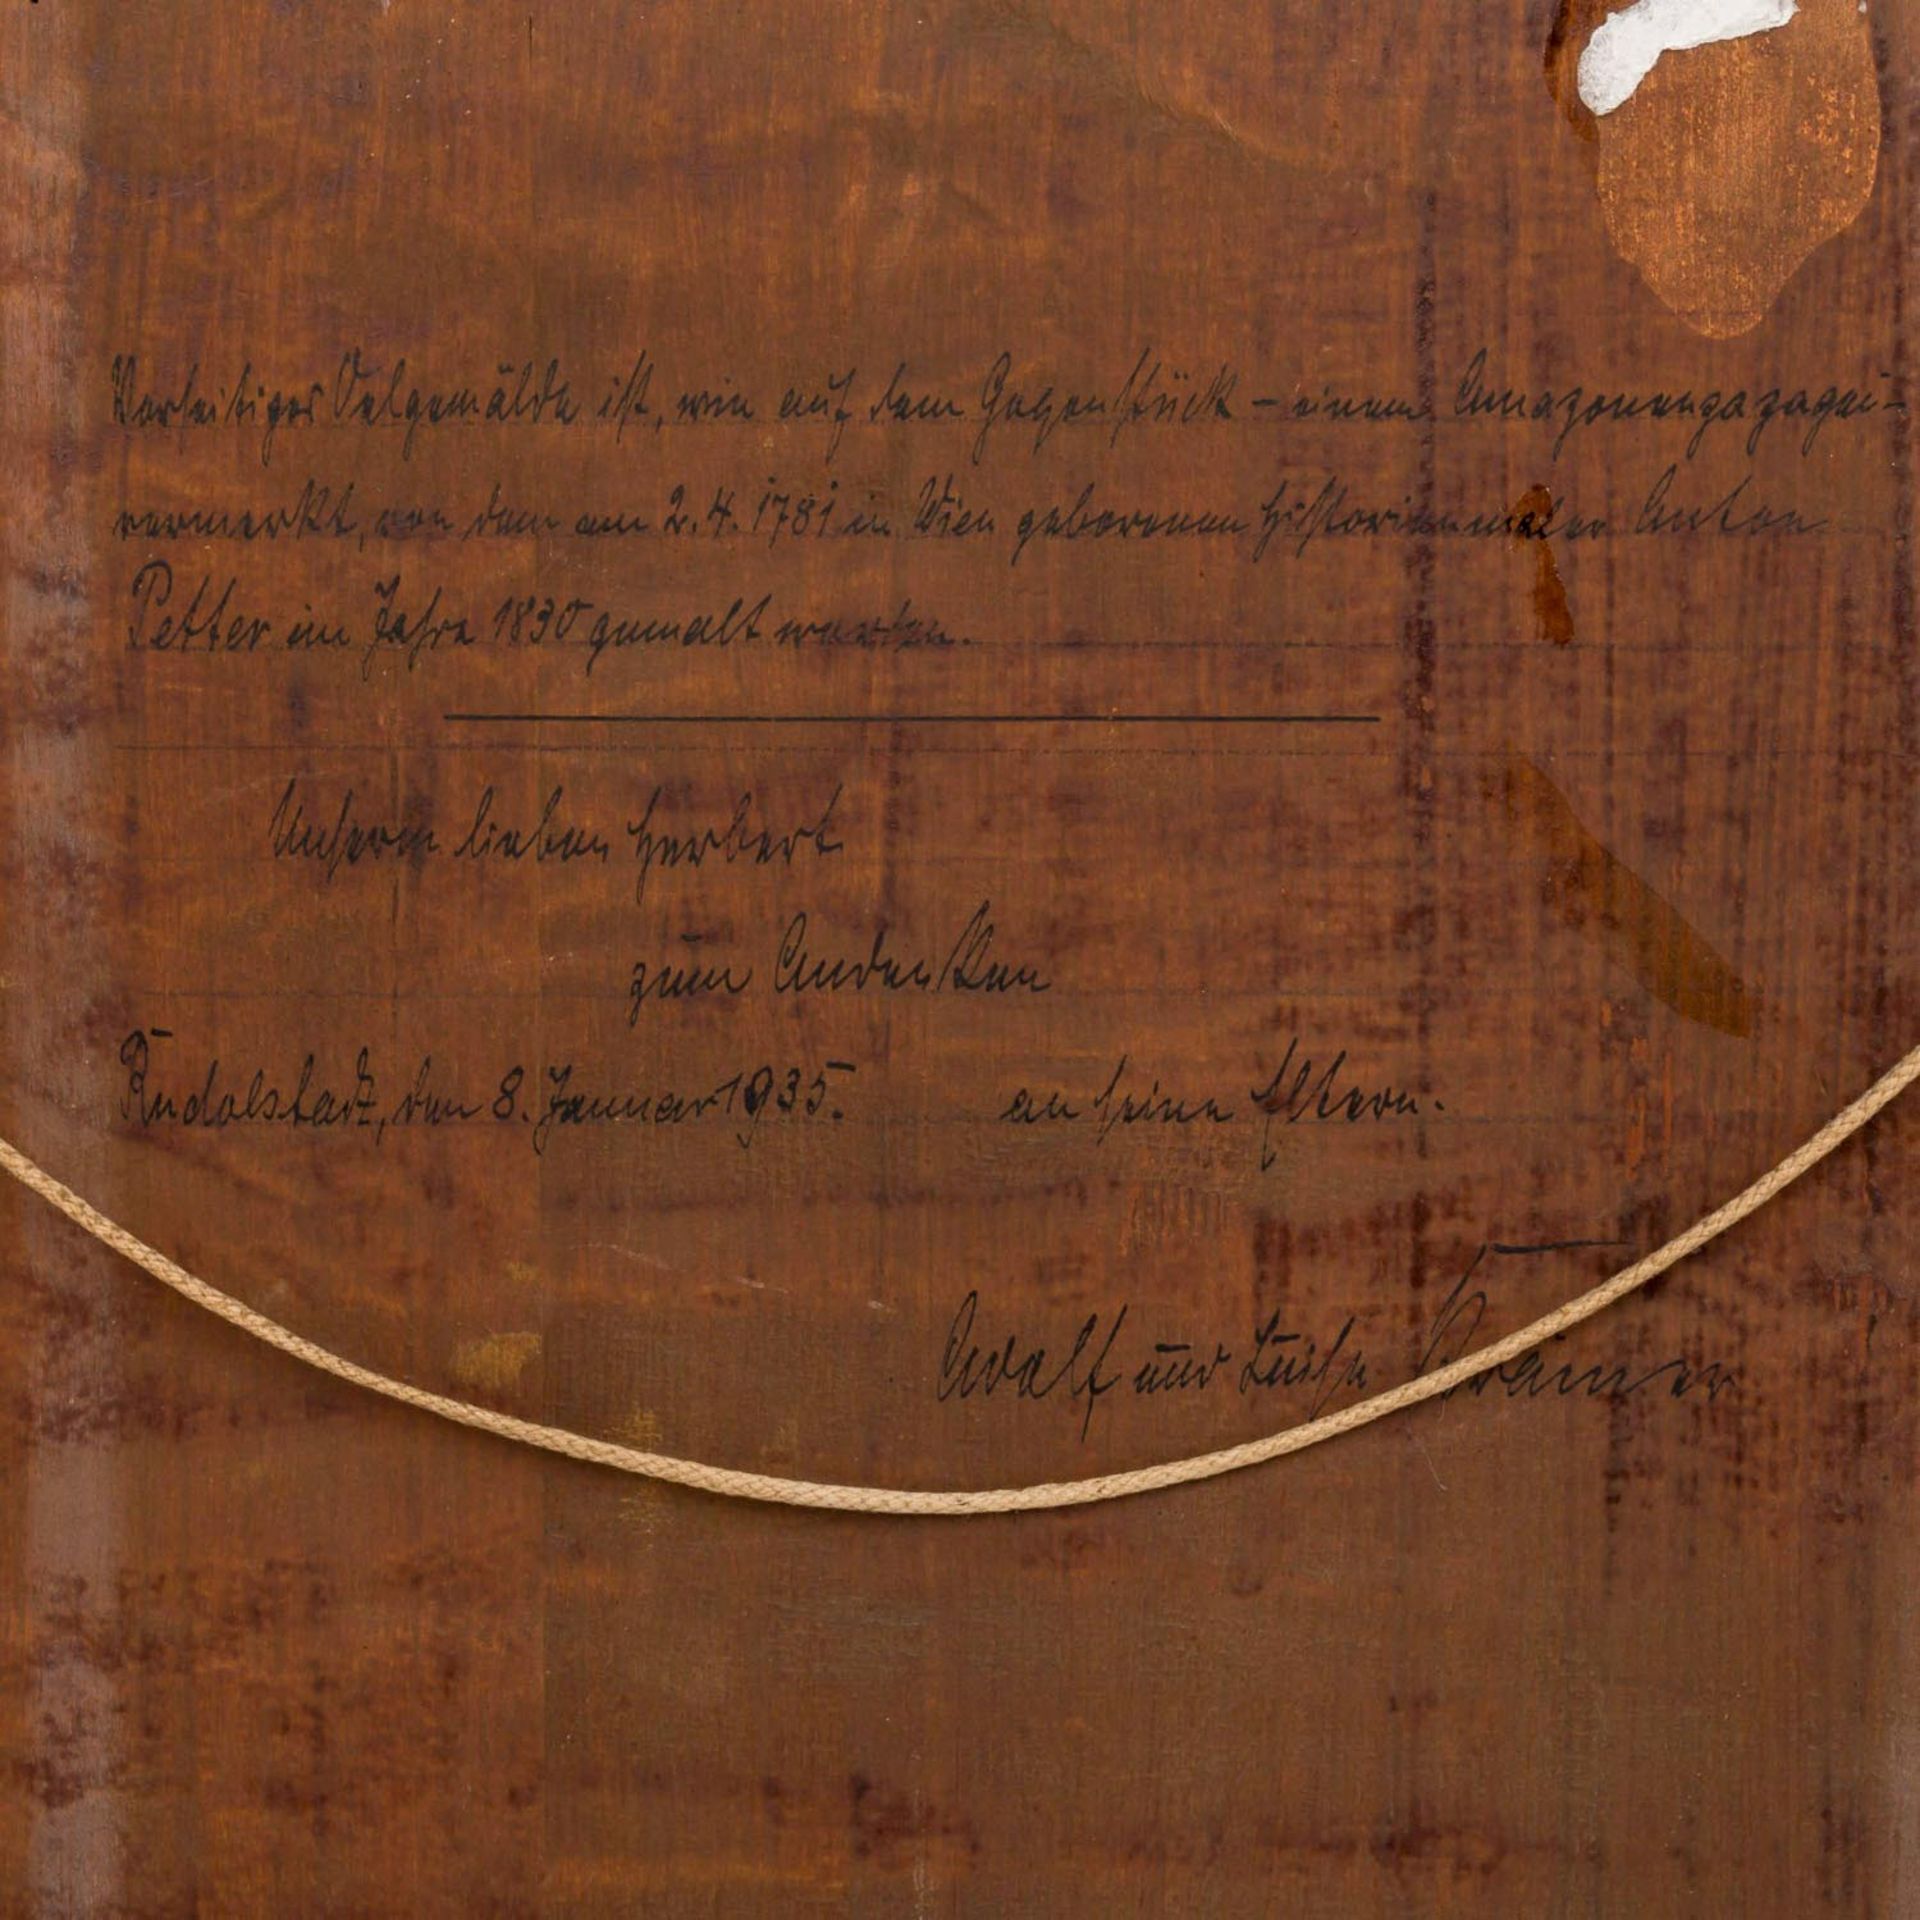 Vorseitiges Oelgemälde ist, wie auf dem Gegenstück – einem
vermerkt, von dem am 2.4.1781 in Wien geborenen Historienmaler Anton
Petter im Jahre 1830 gemalt worden.
Unserm lieben Herbert
zum Andenken
Rudolstadt, den 8. Januar 1935. an seine Eltern.
Adolf und Luise Krämer